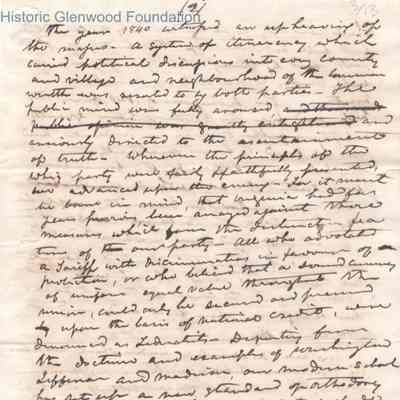 Historic Glenwood Foundation
The year 1840 witnessed an upheaving of
the masses - A system of itinerancy which
carried political discussions into every county
and village and neighbourhood of the Common
wealth was resorted to by both parties - The
public mind was fully aroused and
public opinion was greatly enlightened and
anxiously directed to the ascertainment
of truth - Wherever the principles of the
whig party were fairly & faithfully presented,
we advanced upon the enemy - For it must
be borne in mind, that Virginia had for
years previous been arrayed against those
measures which form the distinctive fea
tures of our party - All who advocated
a Tariff with discriminations in favour of
protection, or who believed that a sound currency
of uniform & equal value throughout the
union, could only be secured and preserved
upon the basis of national credit, were
denounced as Federalists - Departing from
the doctrine and examples of Washington
Jefferson and Madison, our modern school
has set up a new standard of orthodoxy